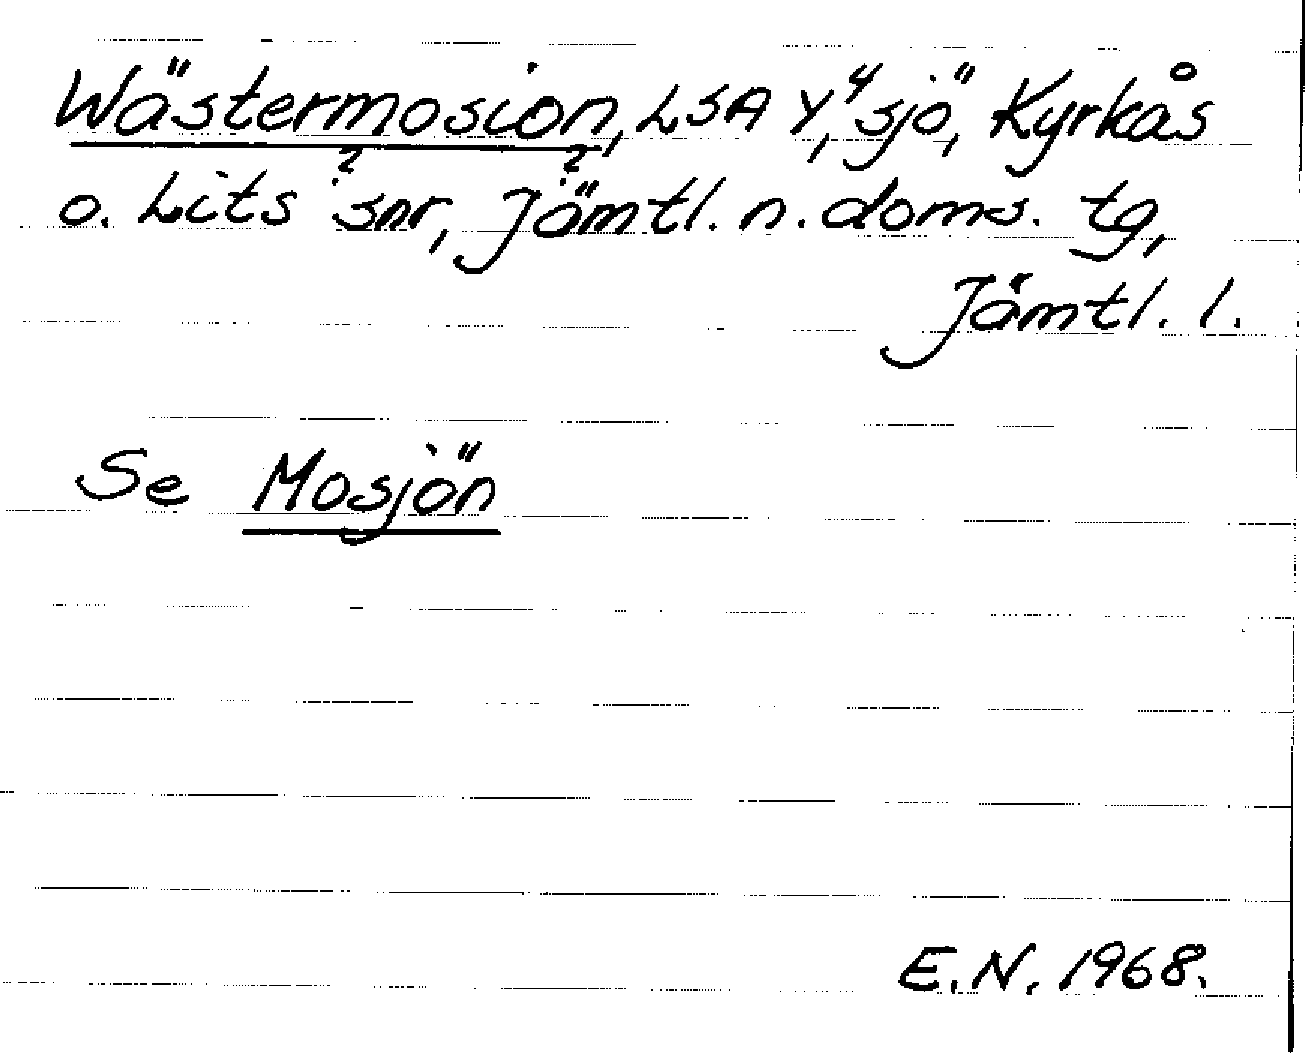 Wästermosion, LSA Y⁴, sjö, Kyrkås
o. Lits snr, Jämtl. n. doms. tg,
Jämtl. l.
Se Mosjön
E.N. 1968.